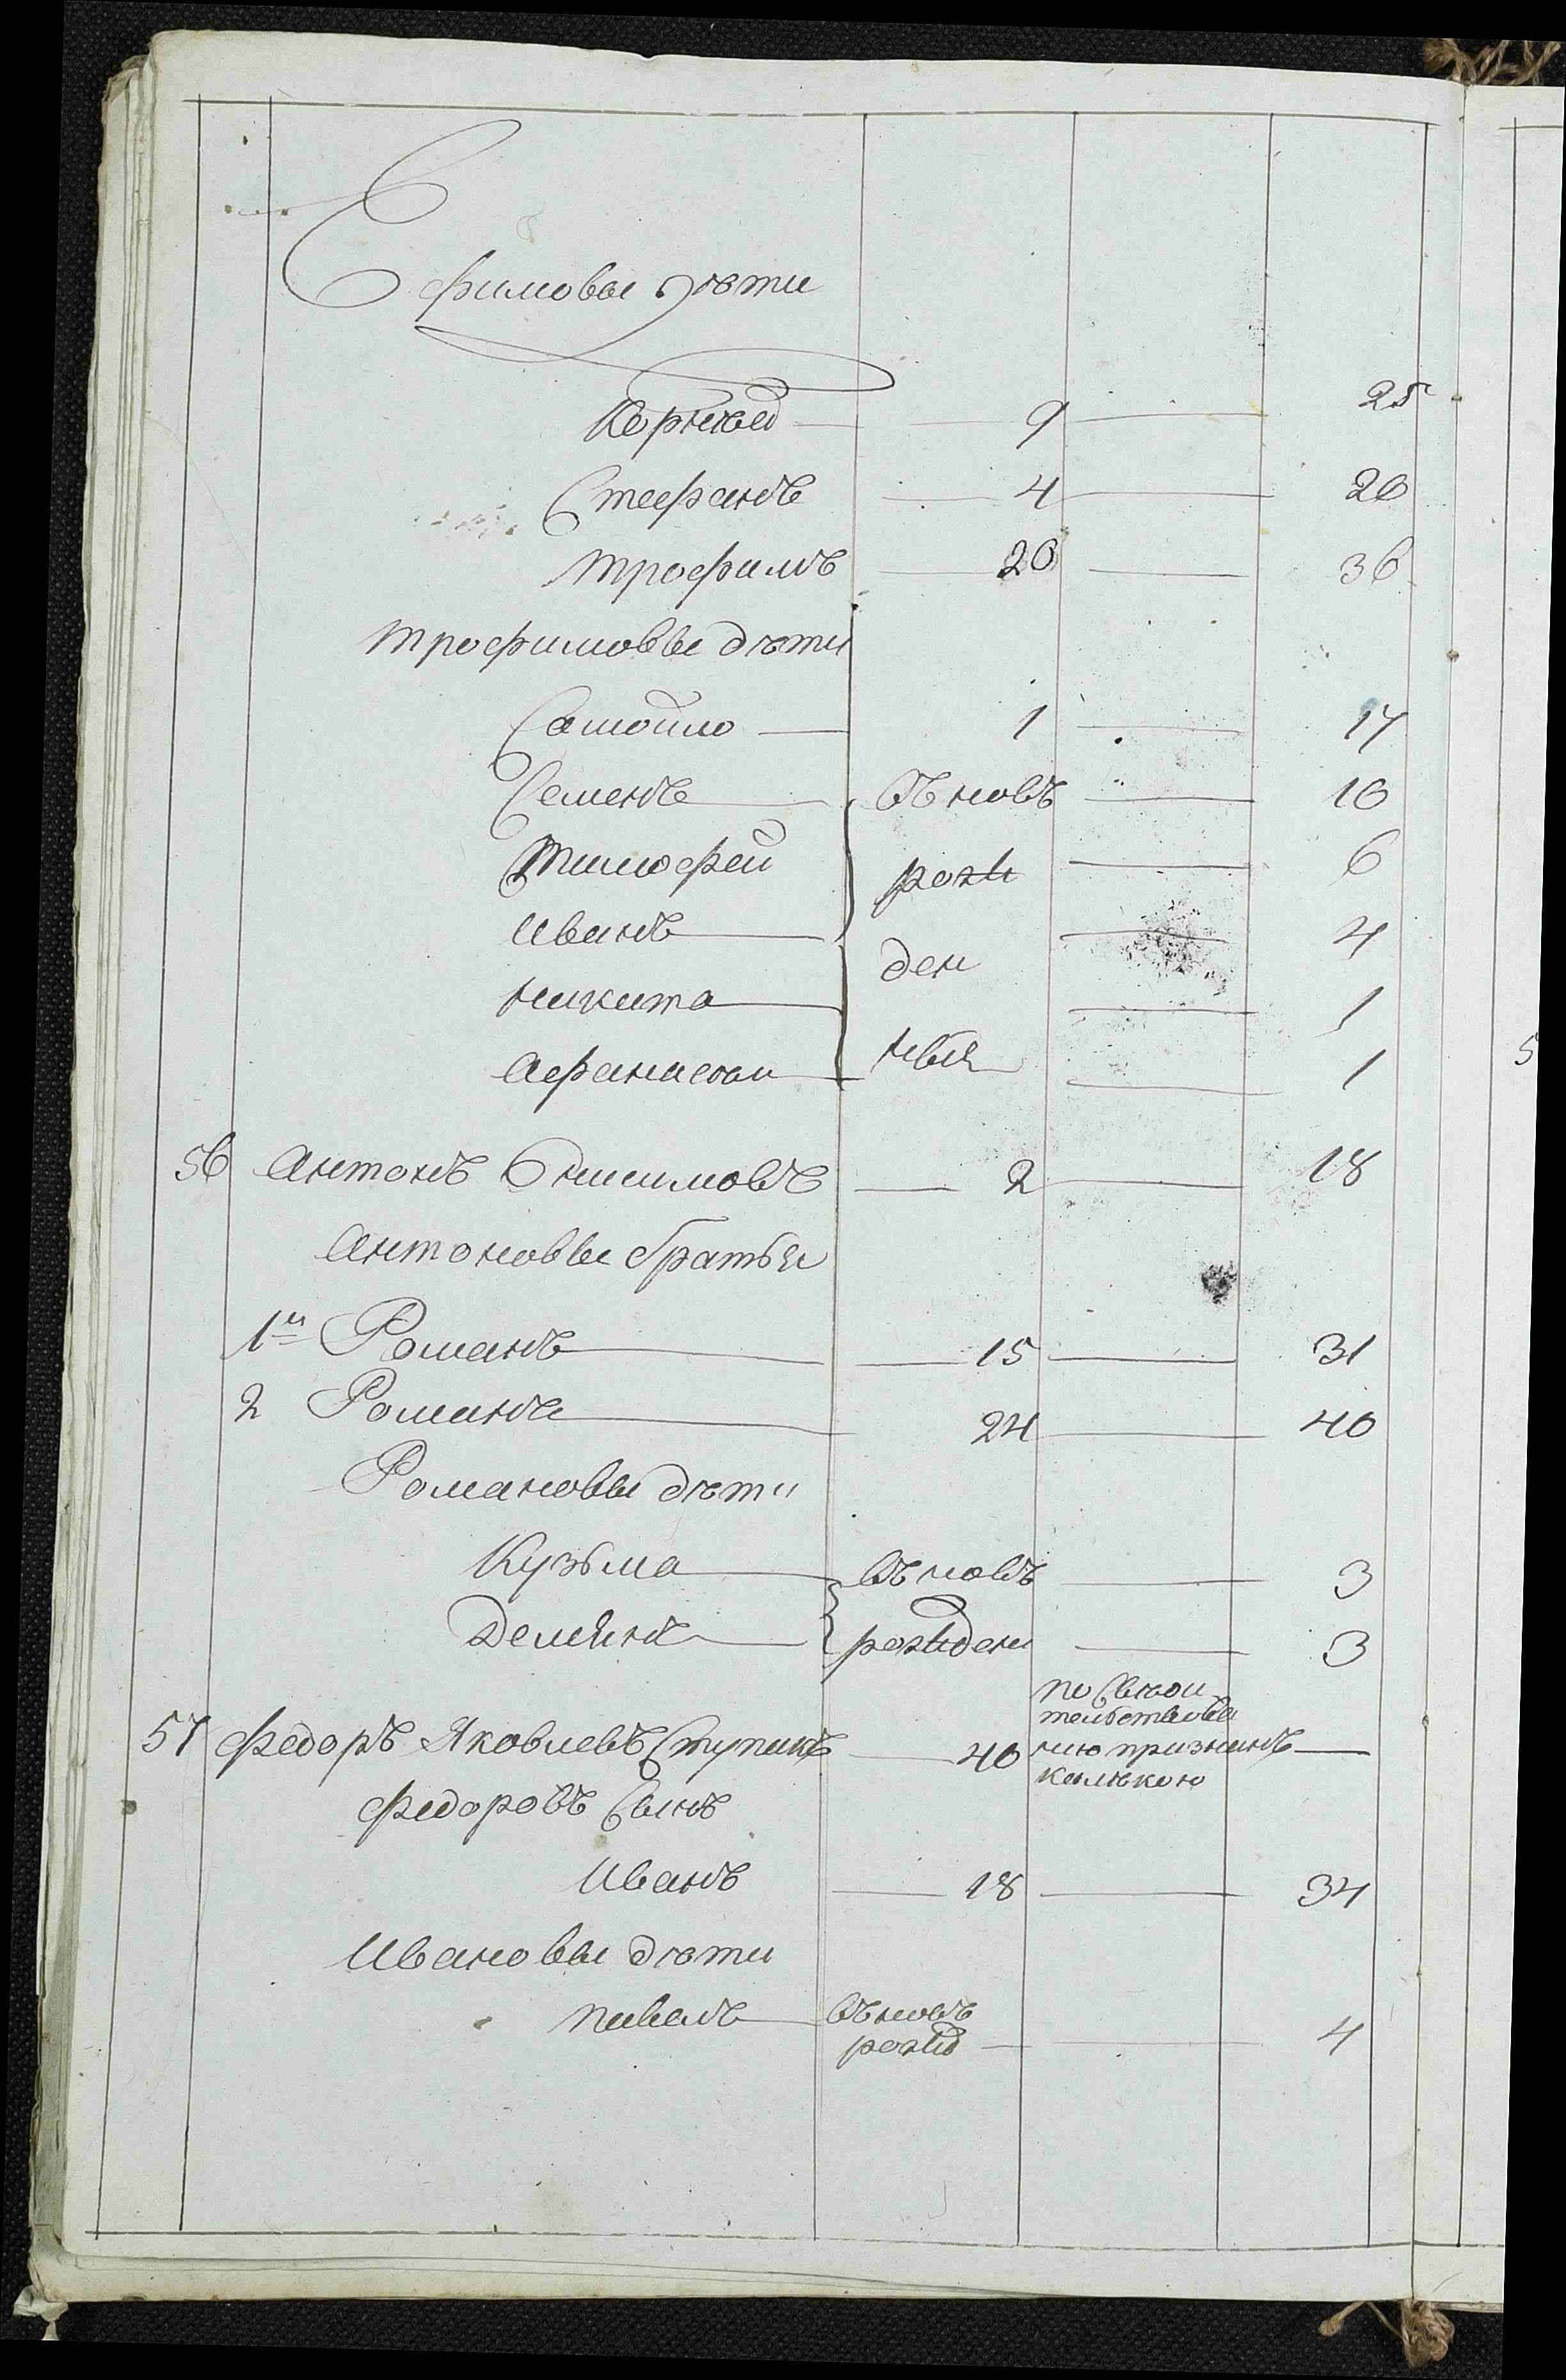 Ефимовы дѣти
Корнѣй 9 25
Стефанъ 4 20
Трофимъ 20 36
Трофимовы дѣти
Самойло 1 17
Семенъ Въновъ 10
Тимофей рож 6
Иванъ ден 4
Никита 1
Афанасои ныя 1
56 Антонъ Онисимовъ 2 18
Антоновы братья
1й Романъ 15 31
2 Романъ 24 40
Романовы дѣти
Кузьма Въновъ 3
Демянъ рожден 3
по Свидѣ
тельствова
57 Федоръ Яковлевъ Ступакъ 40 нию признанъ
калѣкою
Федоровъ Сынъ
Иванъ 18 34
Ивановы дѣти
Павелъ Въновъ
рожд 4
5